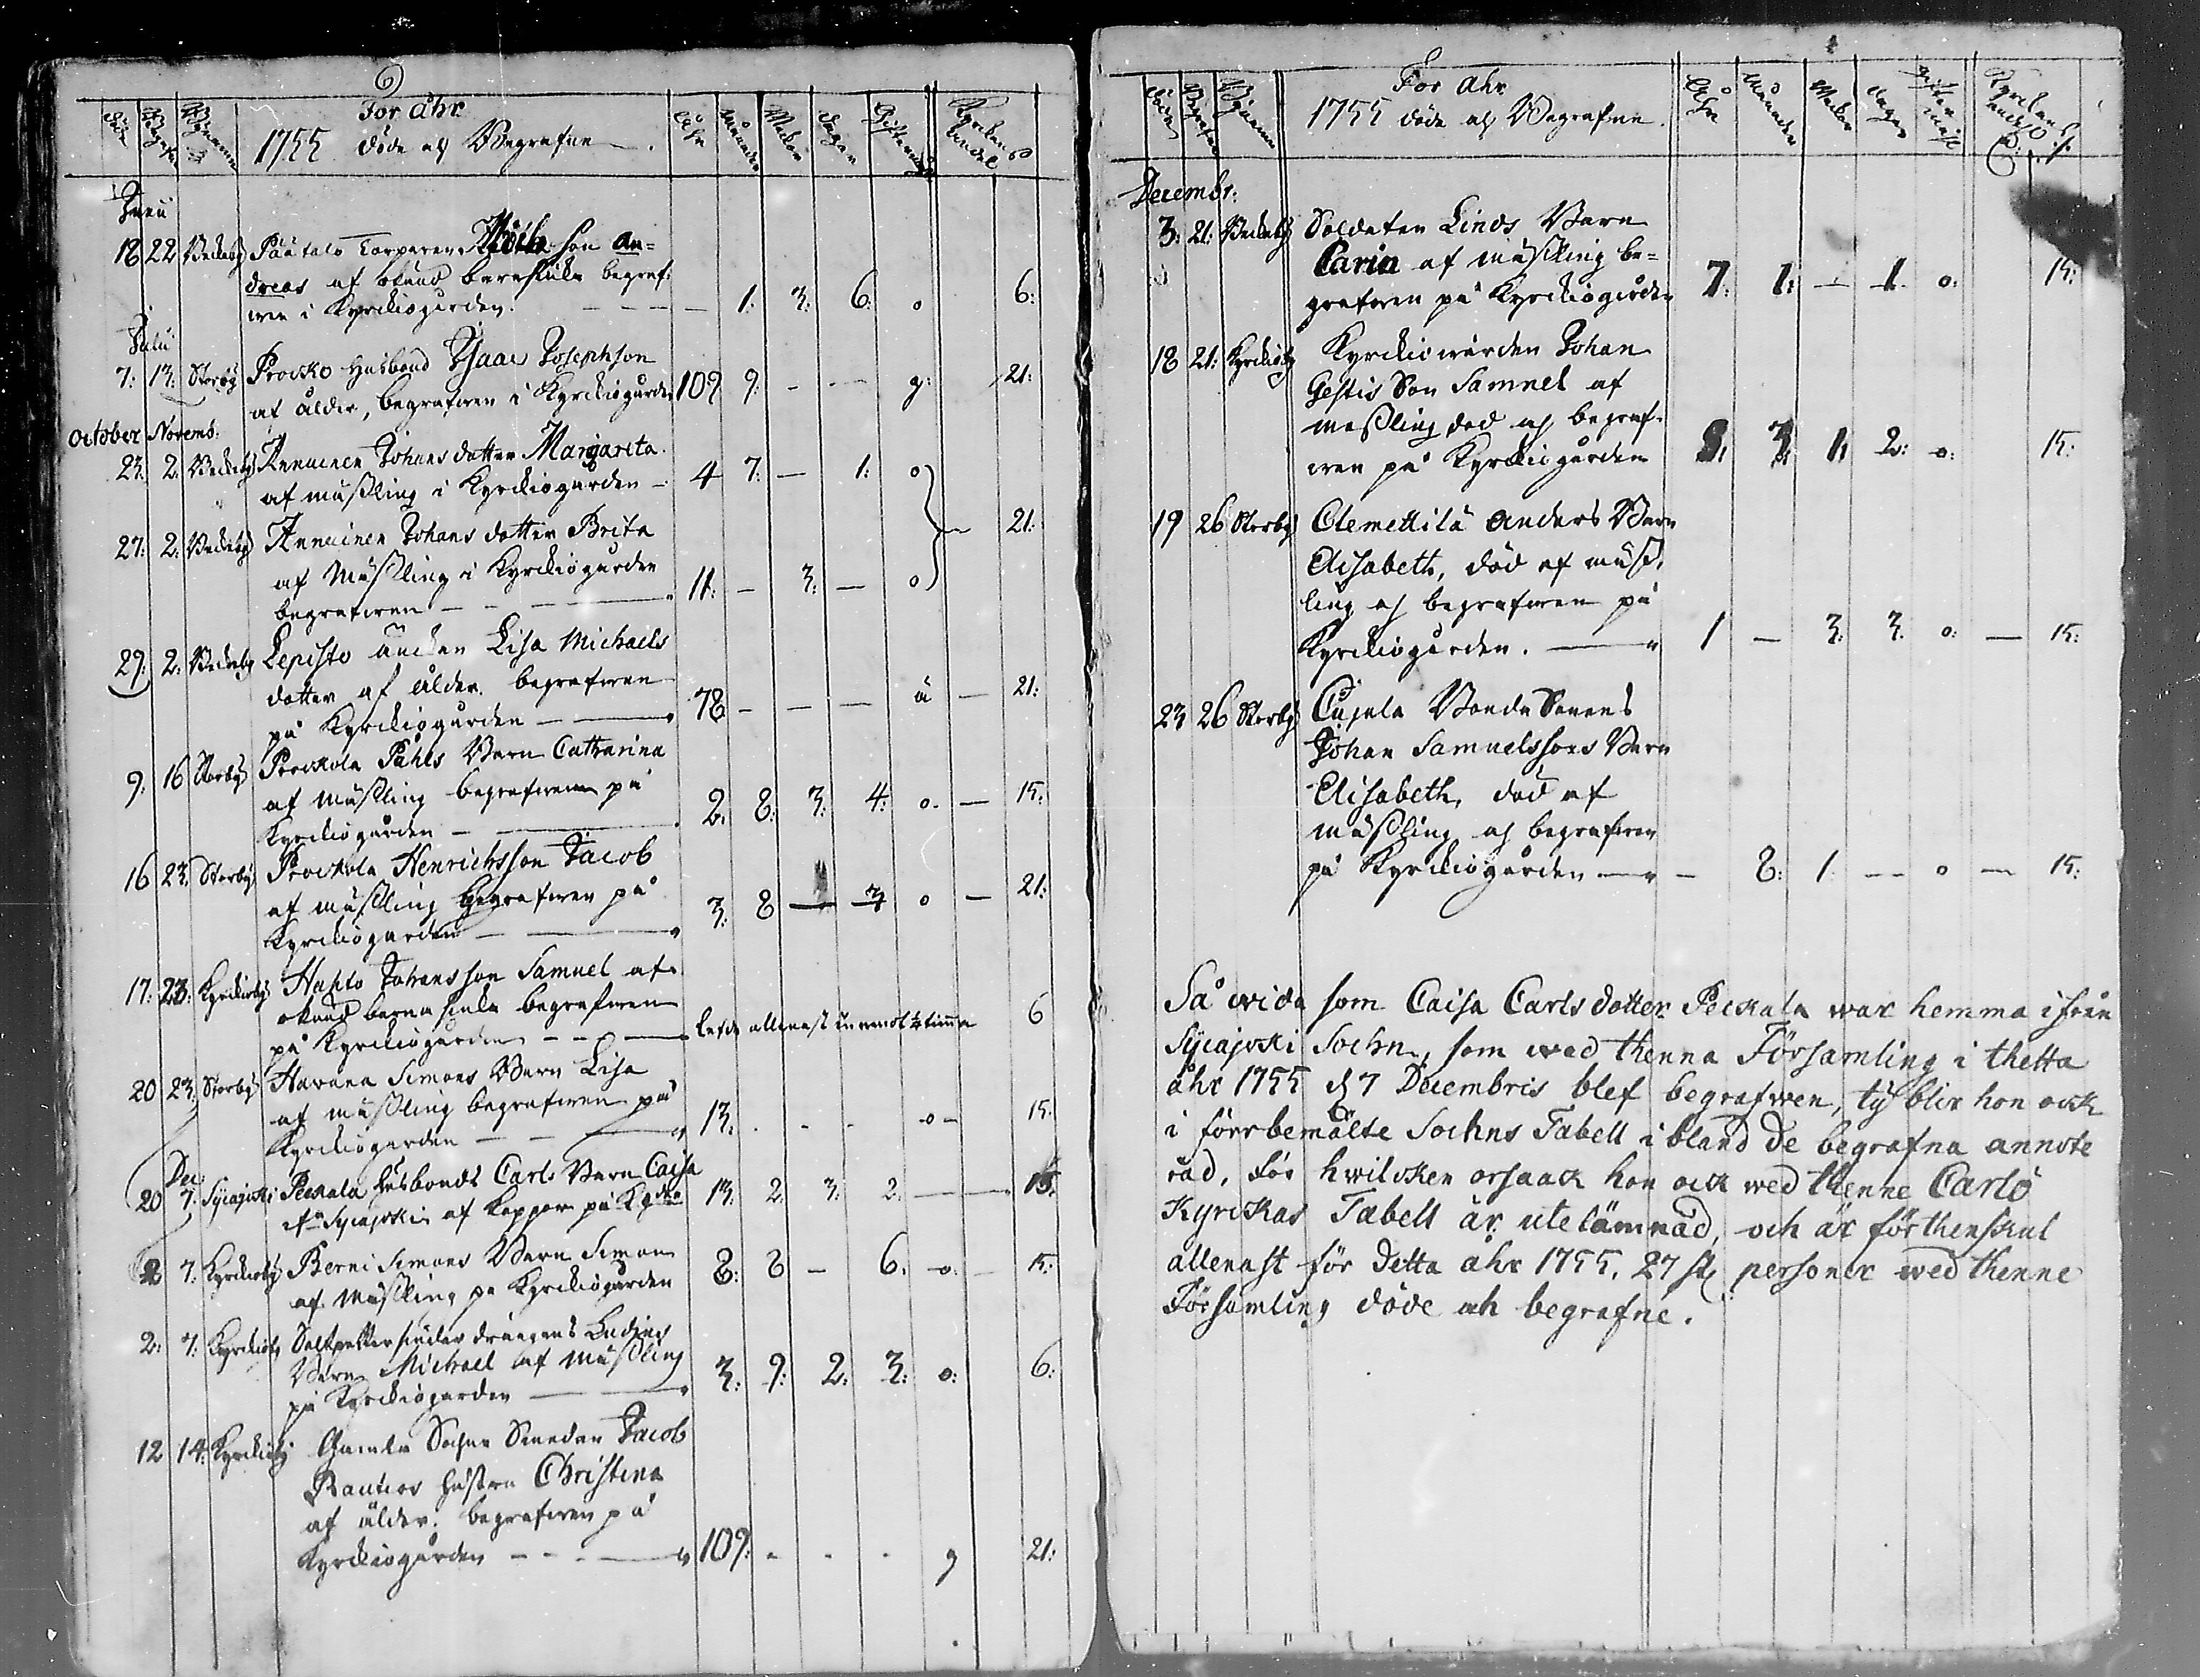 För åhr
1755 döde och Begrafne
Döde
Begrafne
Byarne
Åhr
Månader
Wekor
Dagar
Kyrckans andel
Junii
18 22 Beckeby Paatalo Torparens son An=
dreas af okänd barnsiuka begraf:
wen i Kyrckiogården. 1: 3: 6: o 6:
Julii
7: 13: Storby Procko Husbond Isaac Josephson
af ålder, begrafwen i Kyrckiogården 109 9: - - g: 21:
October Novemb:
23: 2: Annuinen Johans dotter Margareta
af mäßling i Kyrckiogården - 4 7: - 1: o
27: 2: Annuinen Johans dotter Brita
af Mäßling i Kyrckiogården
begrafwen - 11: - 3: - o 21:
29: 2: Lepisto änckan Lisa Michaels
dotter af ålder. begrafwen
på Kyrckiogården - 78 - - - ä - 21:
9: 16 Storby Prockola Påhls Barn Catharina
af mäßling begrafwen på
Kyrckiogården - 2: 8: 3: 4: o - 15:
16 23: Storby Prockola Henrichsson Jacob
af mäßling begrafwen på
Kyrckiogården - 3: 8 - 3 o - 21:
17: 23: Kyrckioby Hahto Johansson Samuel af
okänd barnasiuka begrafwen
på Kyrckiogården - lefde allenast timma 6
20 23 Storby Havana Simons Barn Lisa
af mäßling begrafwen på
Kyrckiogården - 13: - - - o - 15:
Dec
20 7: Sijcajocki Peckala husbonds Carls Barn Caisa
ifrån Sijcajocki af Koppor på 13: 2: 3: 2: - 15:
2 7: Kyrckioby Berni Simons Barn Simon
af Mäßling på Kyrckiogården 8: 8 - 6: o: - 15:
2: 7: Kyrckioby Saltpettersiudar drängens
Barn Michael af mäßling
på Kyrckiogården - 3: 9: 2: 3: o: 6:
12 14: Kyrckioby Gamla Sockne Smeden Jacob
Rautios hustru Christina
af ålder. begrafwen på
Kyrckiogården - 109: - - - g 21:
För åhr
1755 döde och Begrafne.
Döde
Begrafne
Byarne
Åhr
Månader
Wekor
Dagar
Kyrckans andel
Decembr:
3: 21: Beckeby Soldaten Linds Barn
Carin af mäßling be=
grafwen på Kyrckiogården 7: 1: - 1 o: 15:
18 21: Kyrckioby Kyrckiowärden Johan
Son Samuel af
meßling död och begraf-
wen på Kyrckiogården 1 2: o: 15:
19 26 Storby Clemettilä Anders Barn
Elisabeth, död af mäß-
ling och begrafwen på
Kyrckiogården. - 1 - 3: 3 o: - 15:
23 26 Storby Cujala Bonde Sonens
Johan Samuelssons Barn
Elisabeth, död af
mäßling och begrafwen
på Kyrckiogården - - 8: 1 - - o - 15:
Så wida som Caisa Carls dotter Peckala war hemma ifrån
Sijcajocki Sochn, som wed thenna Församling i thetta
åhr 1755 d 7 Decembris blef begrafwen, ty blir hon ock
i förrbemälte Sochns Tabell ibland de begrafna annote
rad, för hwilcken orsaack hon ock wed thenne Carlö
Kyrckas Tabell är utelämnad, och är förthenskul
allenast för detta åhr 1755, 27 st. personer wed thenne
Församling döde och begrafne.